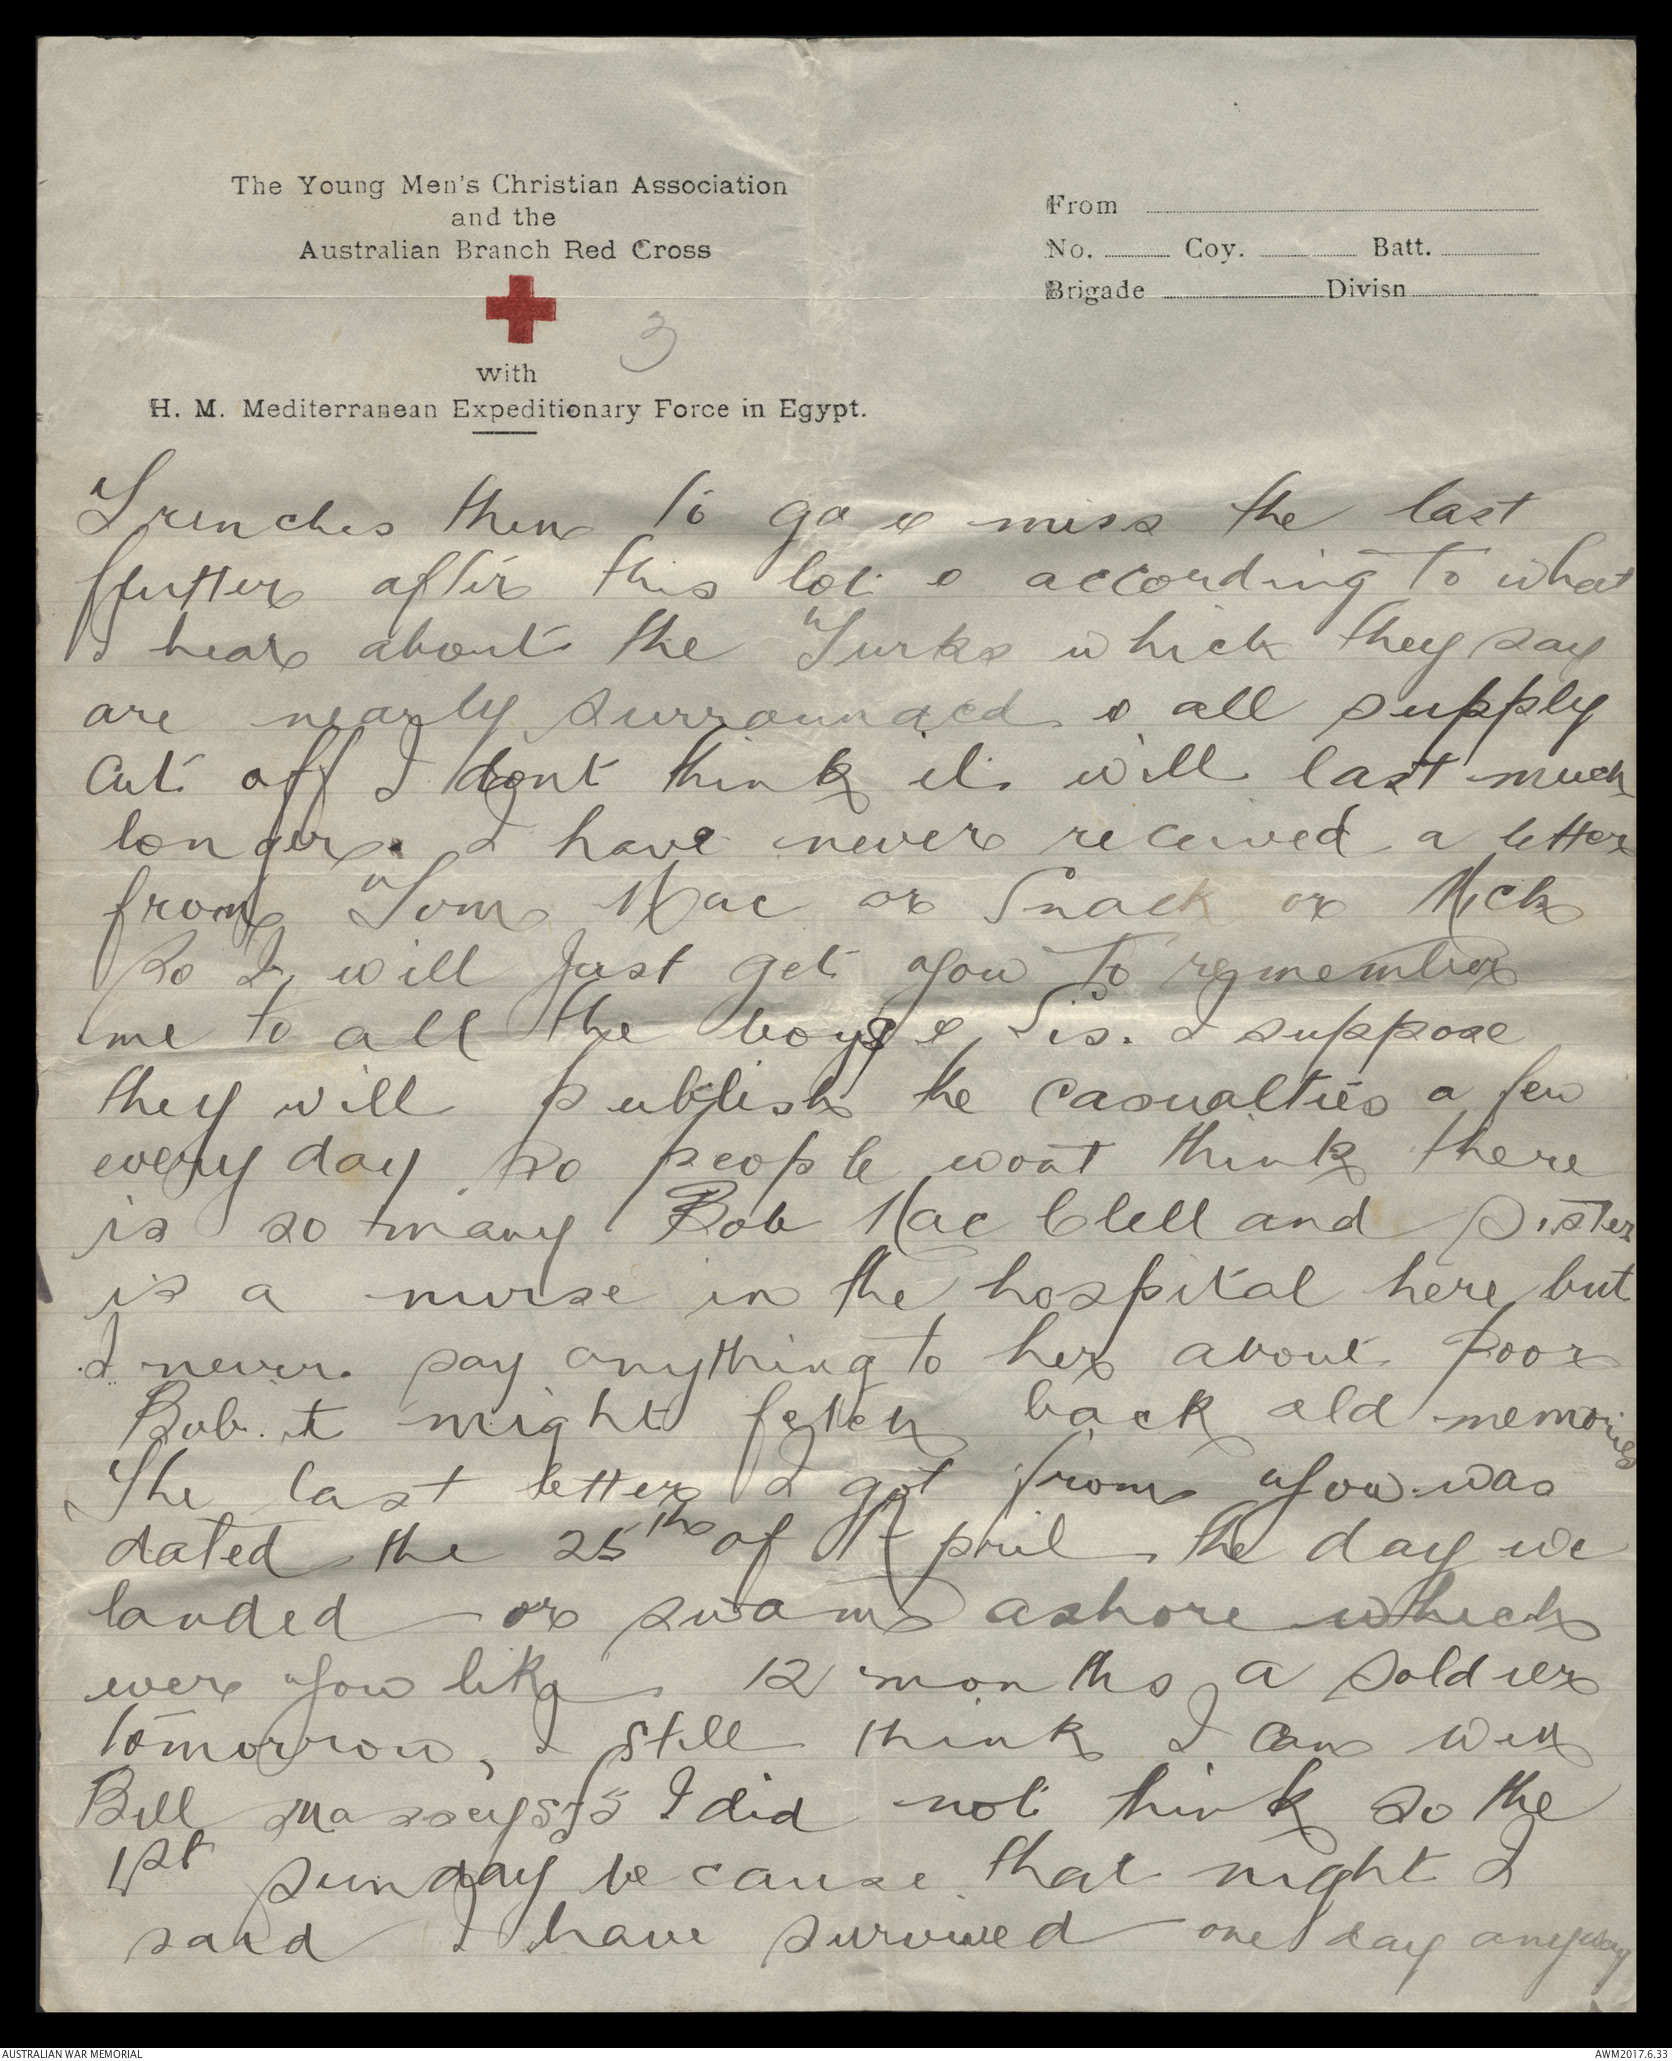 The Young Men's Christian Association
and the
Australian Branch Red Cross
3
with
H. M. Mediterranean Expeditionary Force in Egypt.
From
No. Coy. Batt.
Brigade Divisn
Trenches then to go & miss the last
flutter after this lot & according to what
I hear about the Turks which they say
are nearly surrounded & all supply
cut off I dont think it will last much
longer. I have never received a letter
from Tom Mac or Snack or Mick
So I will just get you to remember
me to all the boys & Sis. I suppose
they will publish the casualties a few
every day so people wont think there
is so many Bob Mac Clelland sister
is a nurse in the hospital here but
I never say anything to her about poor
Bob. it might fetch back old memories
The last letter I got from you was
dated the 25th of April the day we
landed or swam ashore which
ever you like 12 months a soldier
tomorrow, I still think I can win
Bill Masseys 5/- I did not think so the
1st Sunday because that night I
said I have survived one day anyway
AUSTRALIAN WAR MEMORIAL
AWM2017.6.33